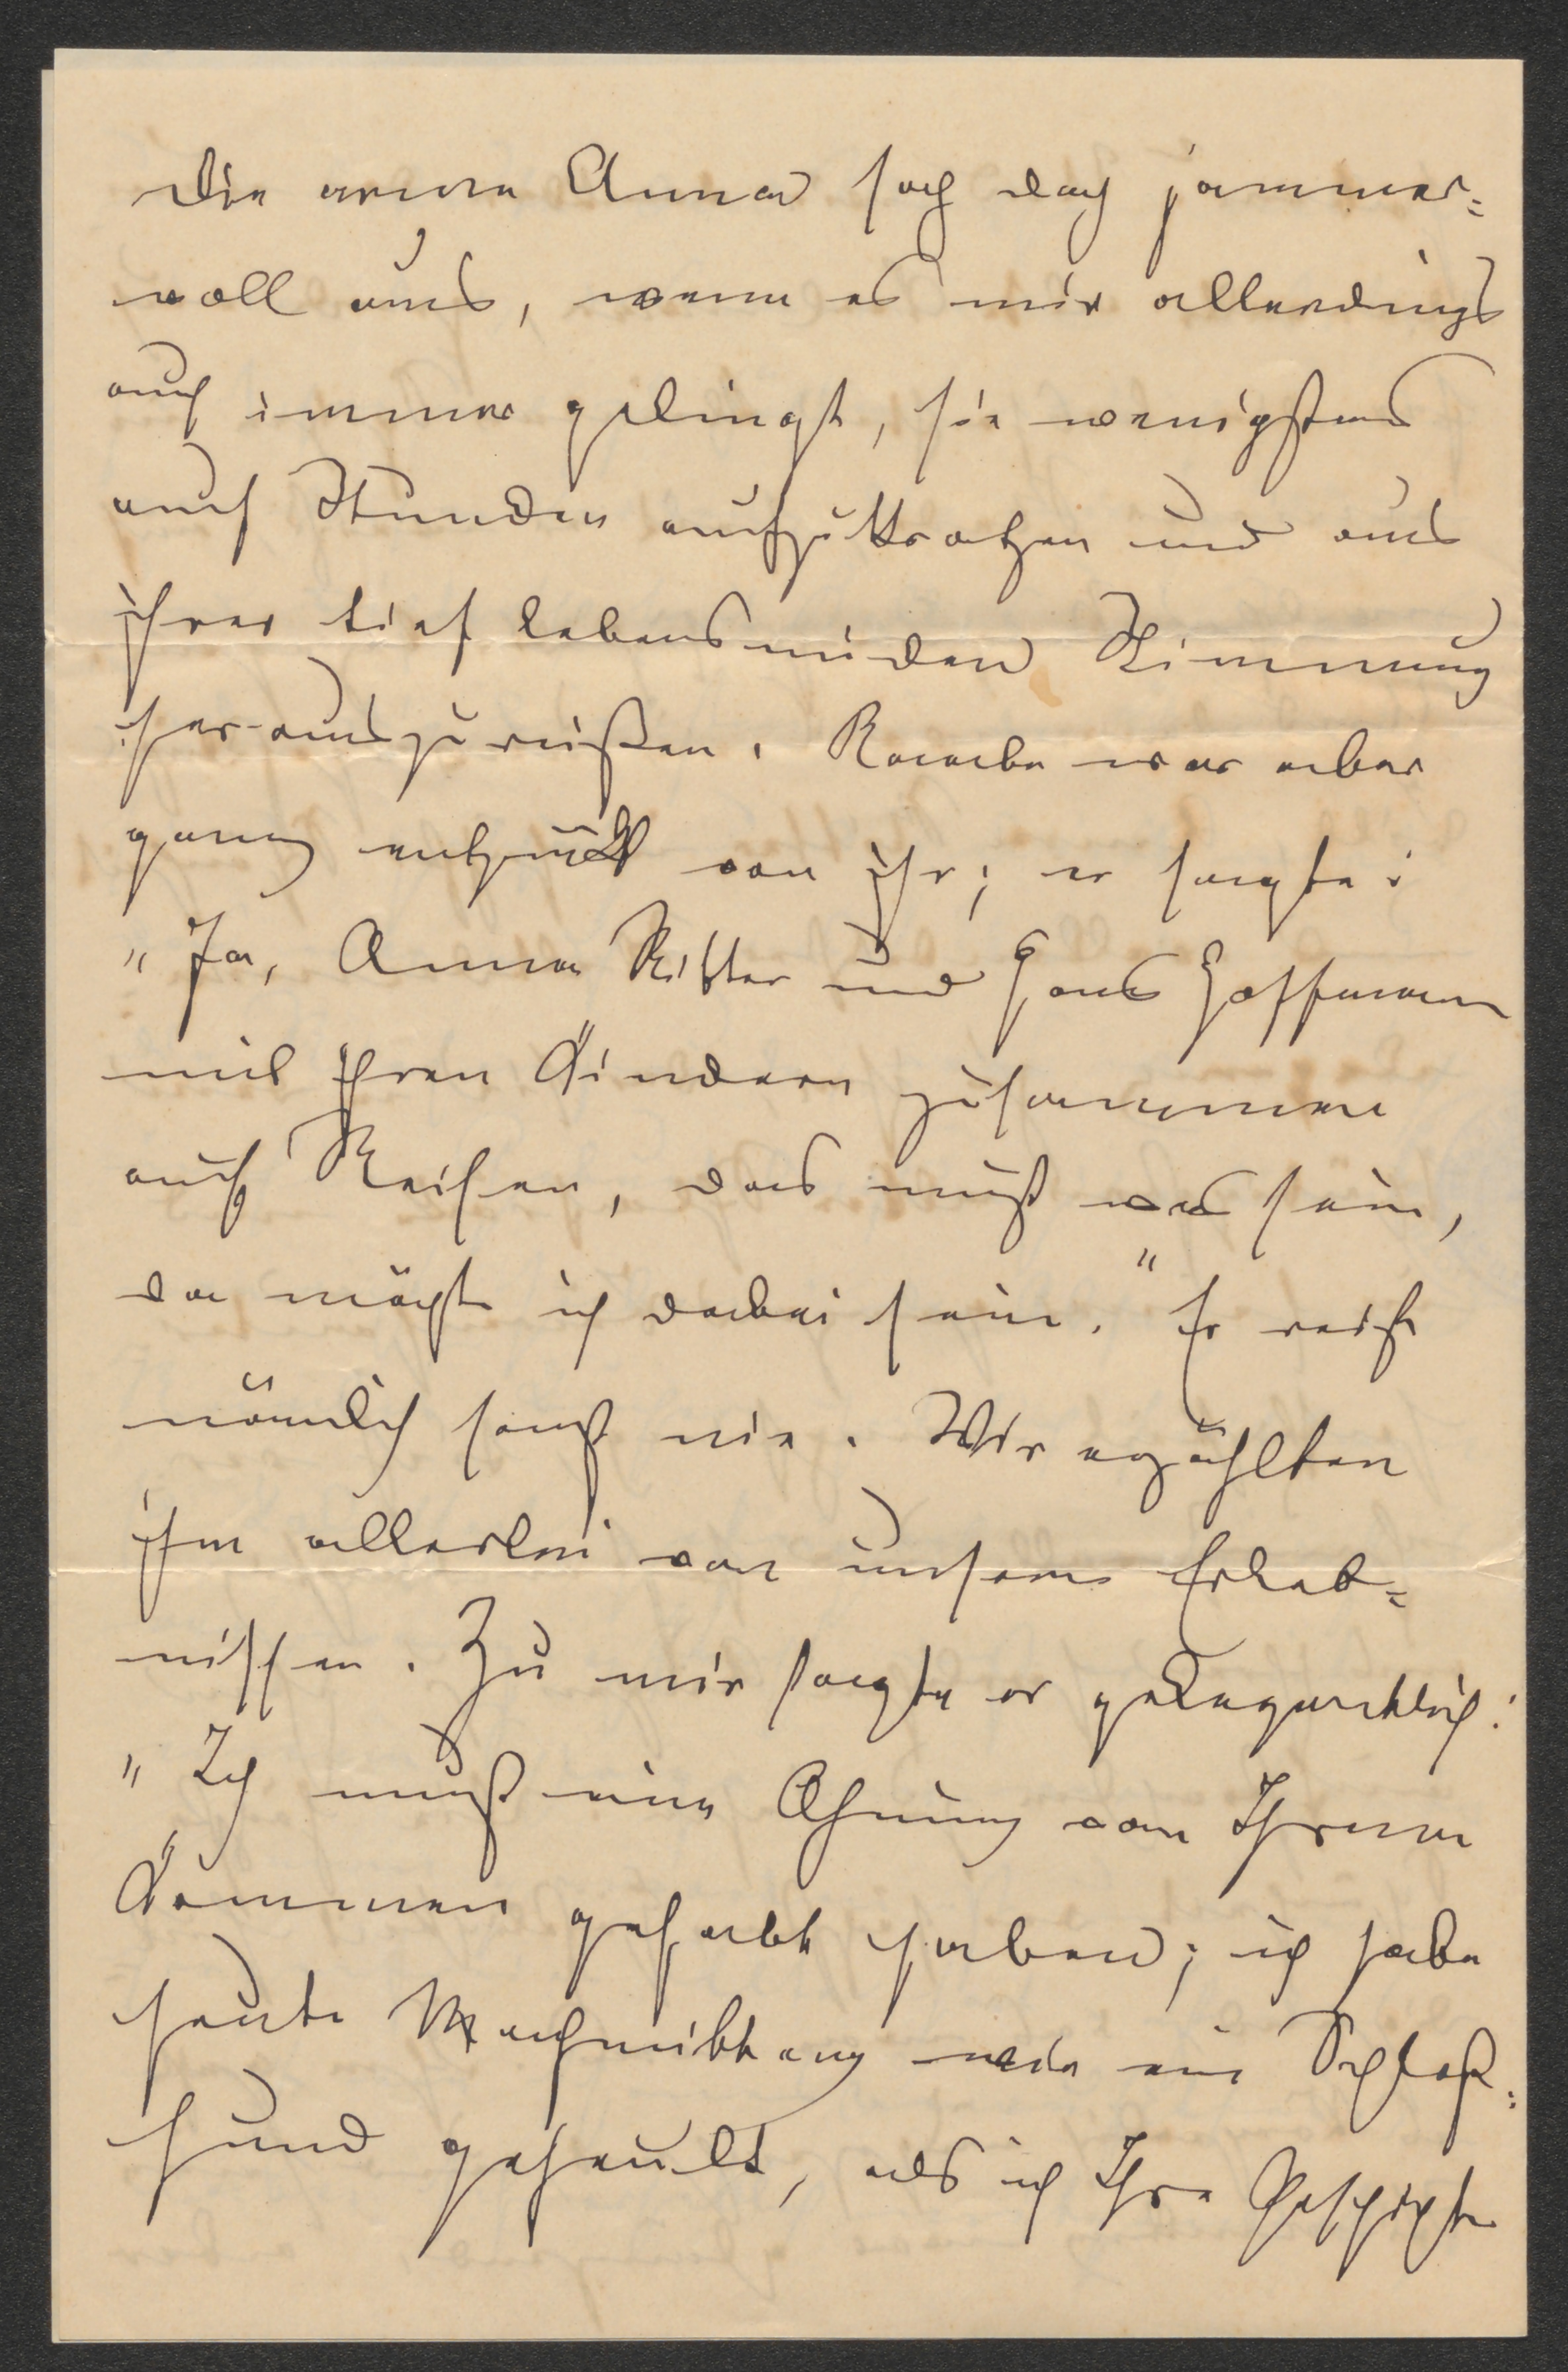 Die arme Anna sah doch jammer=
voll aus, wenn es mir allerdings
auch immer gelingt, sie wenigstens
auf Stunden aufzukratzen und aus
ihrer tief lebensmüden Stimmung
herauszureißen. Raabe war aber
ganz entzückt von ihr; er sagte:
"Ja, Anna Ritter und Hans Hoffmann
mit ihren Kindern zusammen
auf Reisen, das muß was sein,
da möcht ich dabei sein." Er reist
nämlich sonst nie. Wir erzählten
ihm allerlei von unsern Erleb=
nissen. Zu mir sagte er gelegentlich:
"Ich muß eine Ahnung von Ihrem
Kommen gehabt haben; ich habe
heute Nachmittag wie ein Schloß=
hund geheult, als ich Ihre Geschichte